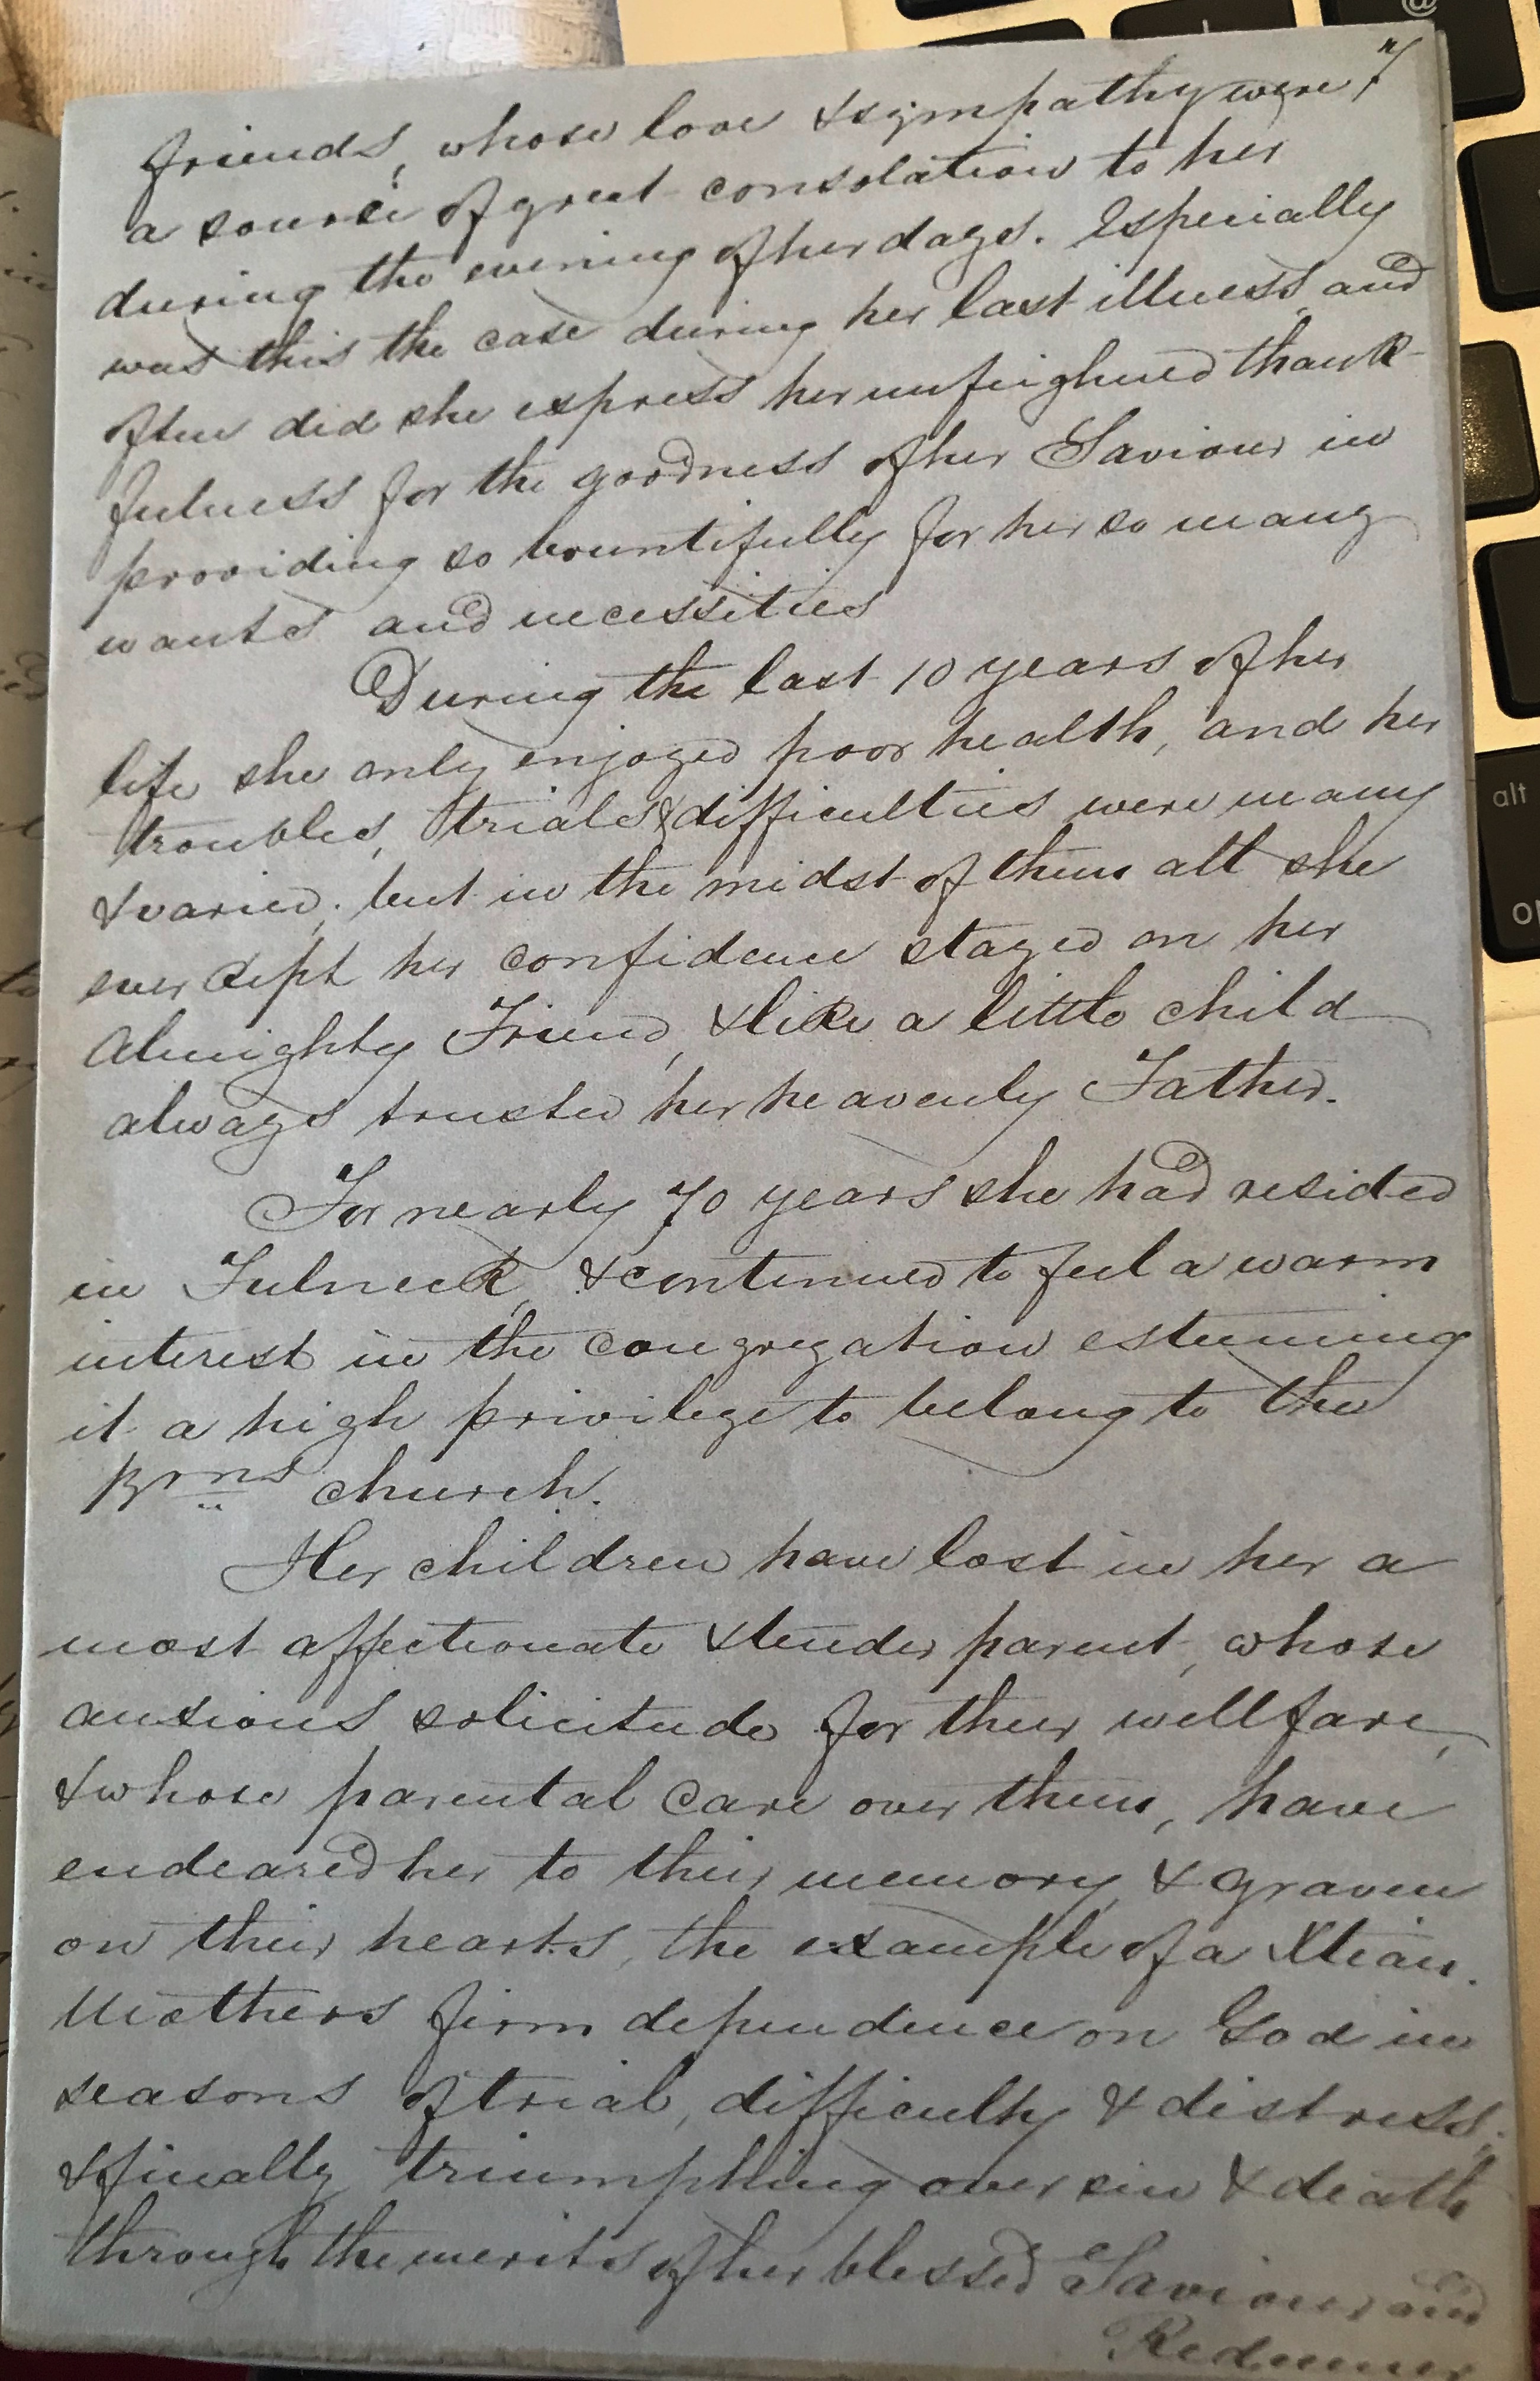 7
friends, whose love & sympathy were
a source of great consolation to her
during the evening of her days. Especially
was this the case during her last illness and
often did she express her unfeighned thank-
fulness for the goodness of her Saviour in
providing so bountifully for her so many
wants and necessities
During the last 10 years of her
life she only enjoyed poor health, and her
troubles, trials & difficulties were many
& varied; but in the midst of them all she
ever kept her confidence stayed on her
Almighty Friend, & like a little child
always trusted her heavenly Father.
For nearly 70 years she had resided
in Fulneck, & continued to feel a warm
interest in the congregation esteeming
it a high privilege to belong to the
Brns church.
Her children have lost in her a
most affectionate & tender parent, whose
anxious solicitude for their wellfare,
& whose parental care over them, have
endeared her to their memory, & graven
on their hearts, the example of a Xtian.
Mothers firm dependence on God in
seasons of trial, difficulty & distress;
& finally triumphing over sin & death
through the merits of her blessed Saviour and
Redeemer
alt
@